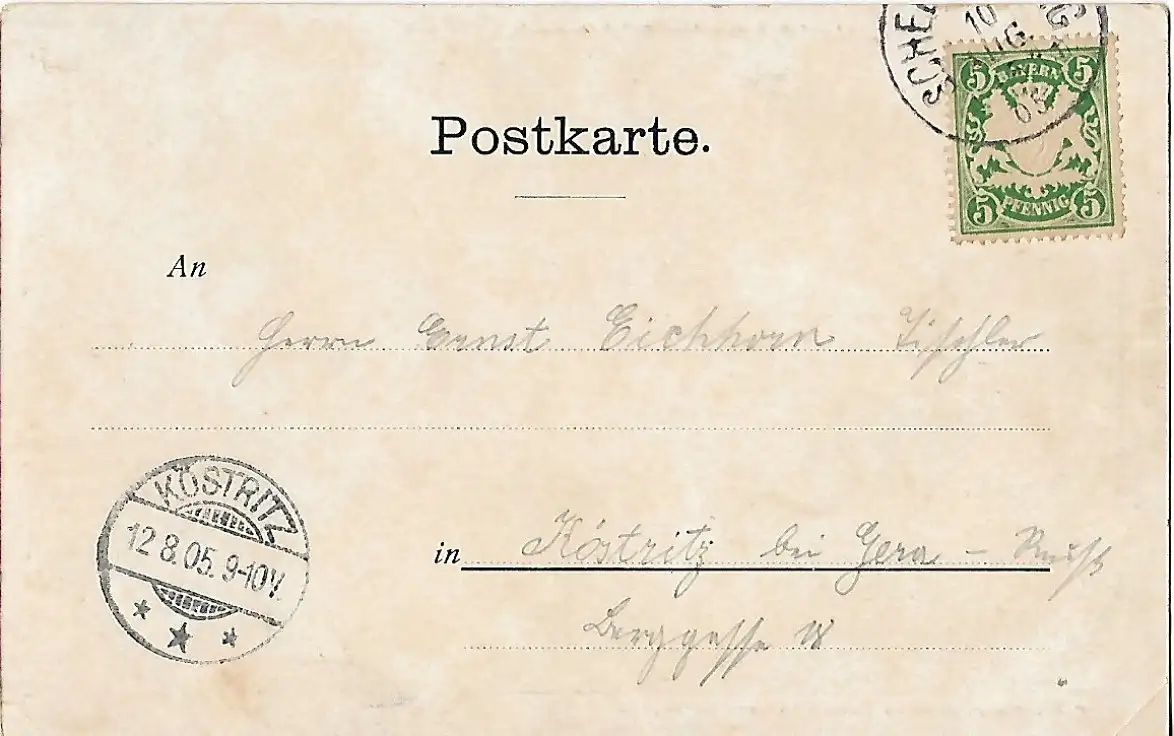 SCHE
10
AUG.
05
5 BAYERN 5
5 PFENNIG 5
Postkarte.
An
Herrn Ernst Eichhorn Tischler
KÖSTRITZ
12 8.05. 9-10V.
in Köstritz bei Gera - Reuß
Berggasse